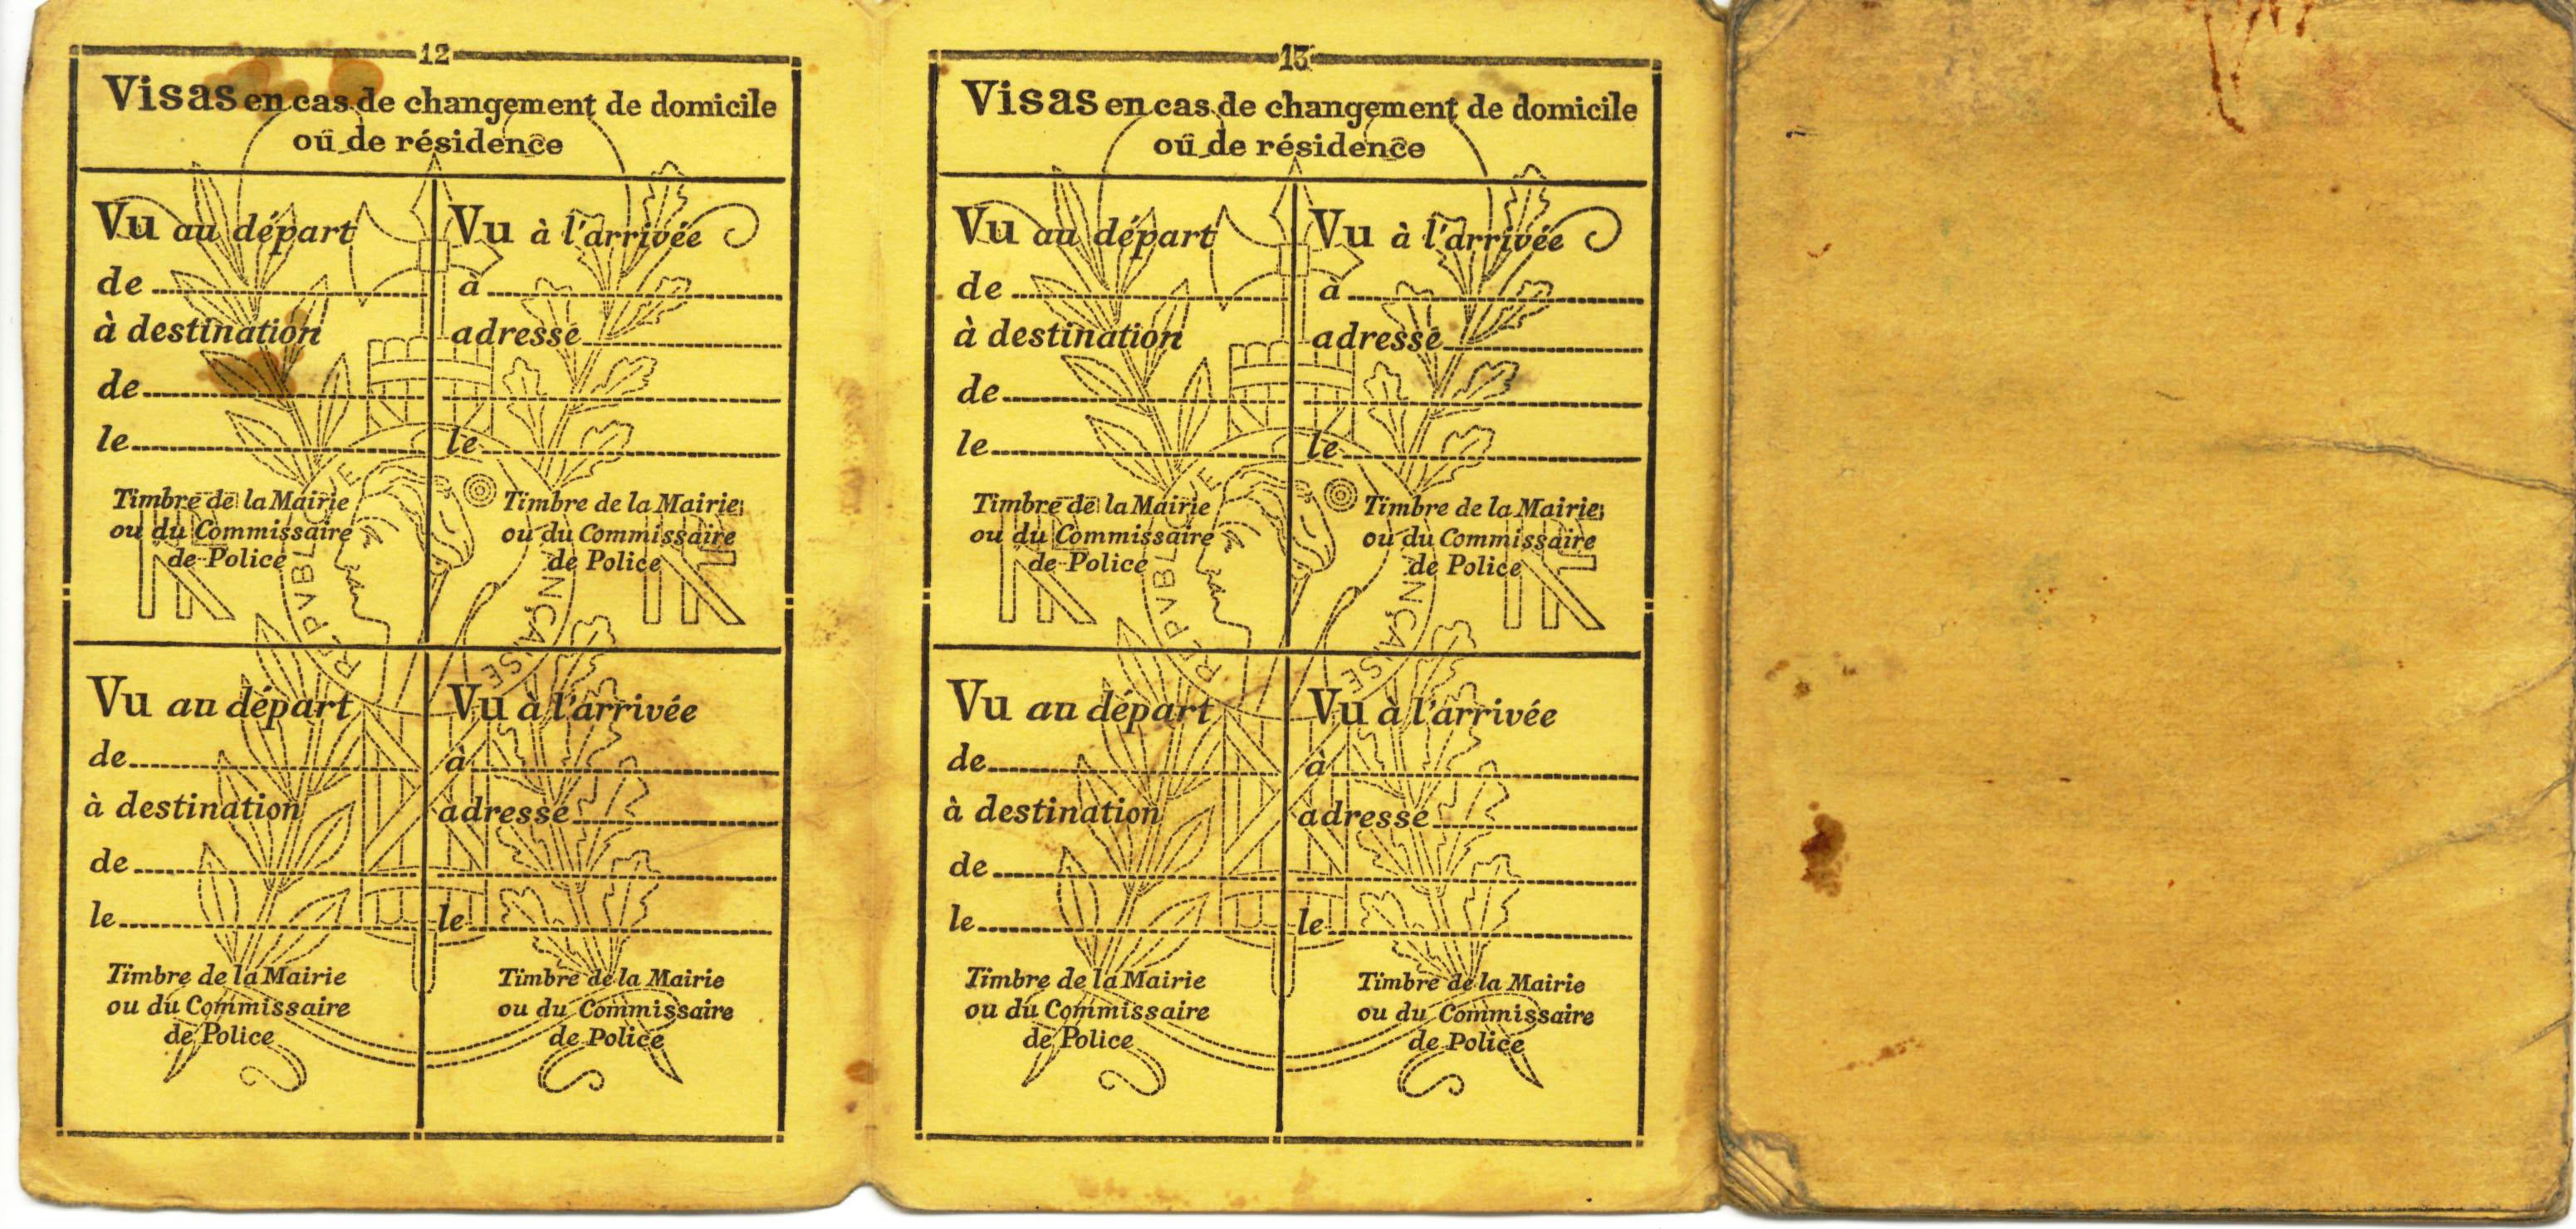 12
Visas en cas de changement de domicile
ou de résidence
Vu au départ
de
à destination
de
le
Timbre de la Mairie
ou du Commissaire
de Police
Vu à l'arrivée
à
adresse
le
Timbre de la Mairie
ou du Commissaire
de Police
Vu au départ
de
à destination
de
le
Timbre de la Mairie
ou du Commissaire
de Police
Vu à l'arrivée
à
adresse
le
Timbre de la Mairie
ou du Commissaire
de Police
RÉPVBLIQVE FRANÇAISE
13
Visas en cas de changement de domicile
ou de résidence
Vu au départ
de
à destination
de
le
Timbre de la Mairie
ou du Commissaire
de Police
Vu à l'arrivée
à
adresse
le
Timbre de la Mairie
ou du Commissaire
de Police
Vu au départ
de
à destination
de
le
Timbre de la Mairie
ou du Commissaire
de Police
Vu à l'arrivée
à
adresse
le
Timbre de la Mairie
ou du Commissaire
de Police
RÉPVBLIQVE FRANÇAISE